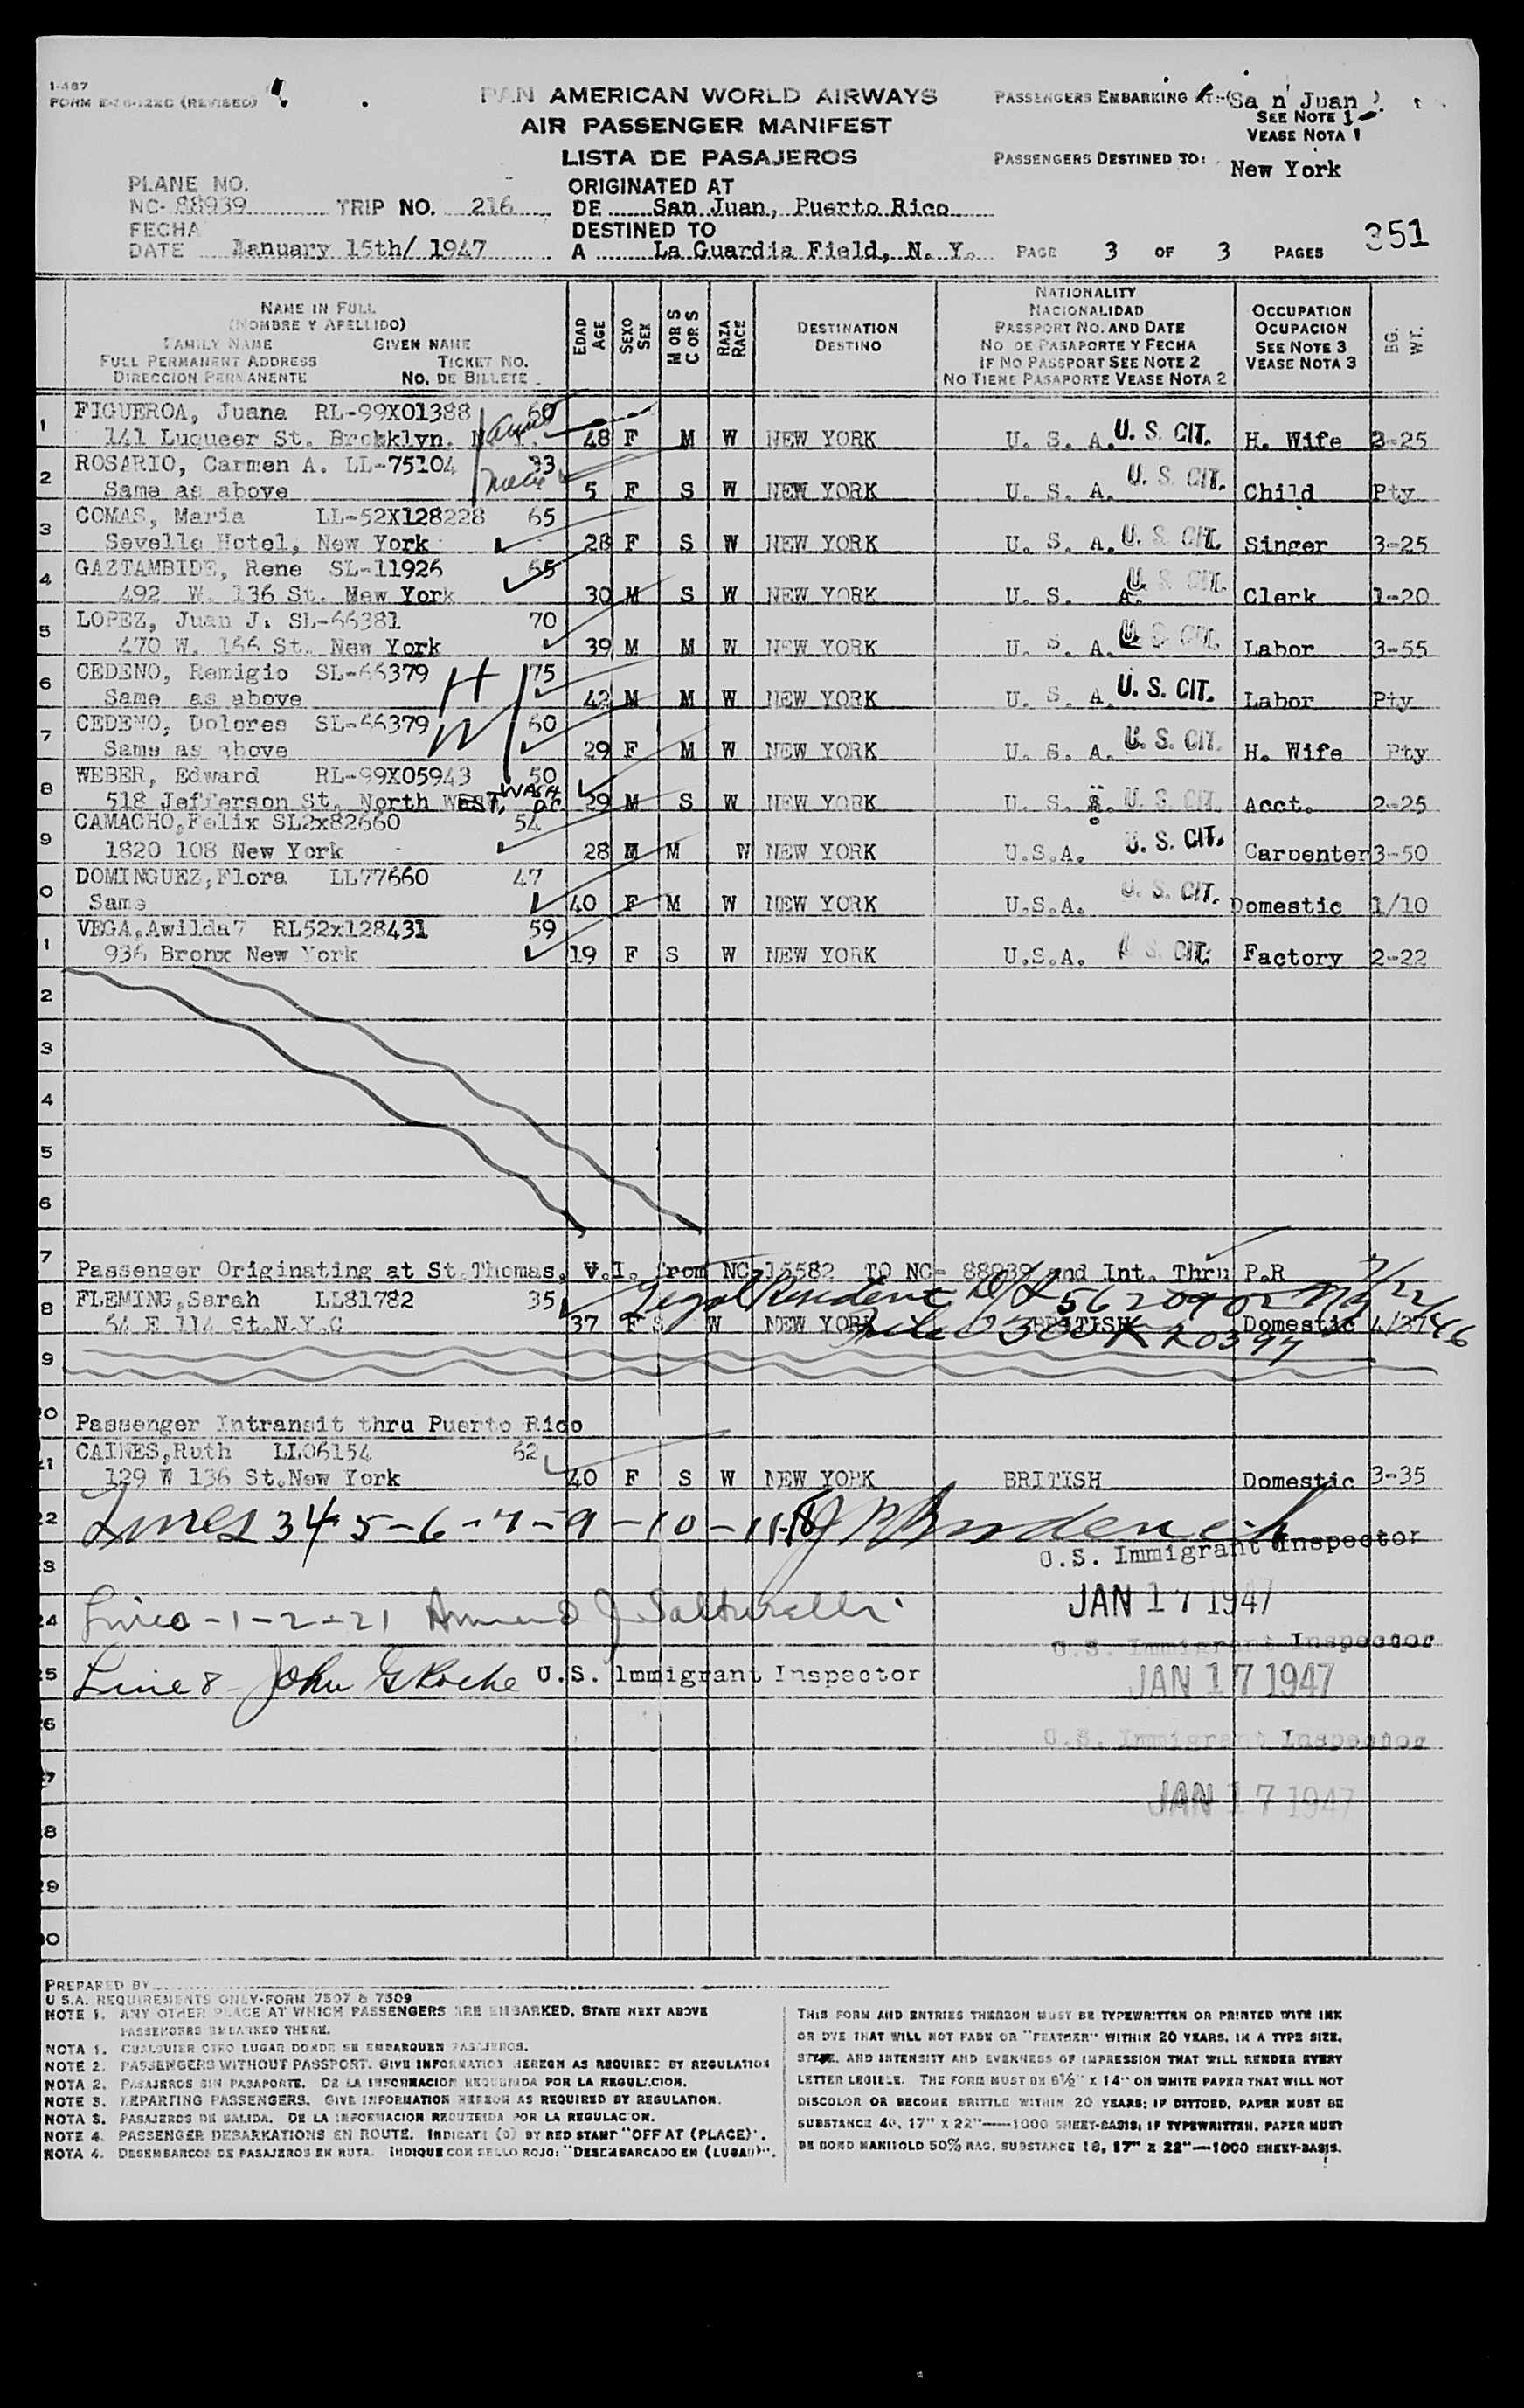 1-487
FORM E-26-122C (REVISED)
PAN AMERICAN WORLD AIRWAYS
AIR PASSENGER MANIFEST
LISTA DE PASAJEROS
PASSENGERS EMBARKING AT: (San Juan)
SEE NOTE 1
VEASE NOTA 1
PASSENGERS DESTINED TO: New York
PLANE NO.
NC- 88939 TRIP NO. 216
ORIGINATED AT
DE San Juan, Puerto Rico
FECHA
DATE January 15th/ 1947
DESTINED TO
A La Guardia Field, N. Y. PAGE 3 OF 3 PAGES
351
NAME IN FULL
(NOMBRE Y APELLIDO)
FAMILY NAME GIVEN NAME
FULL PERMANENT ADDRESS TICKET NO.
DIRECCION PERMANENTE NO. DE BILLETE
EDAD AGE
SEXO SEX
M OR S C OR S
RAZA RACE
DESTINATION
DESTINO
NATIONALITY
NACIONALIDAD
PASSPORT NO. AND DATE
NO DE PASAPORTE Y FECHA
IF NO PASSPORT SEE NOTE 2
NO TIENE PASAPORTE VEASE NOTA 2
OCCUPATION
OCUPACION
SEE NOTE 3
VEASE NOTA 3
BG. WT.
1 FIGUEROA, Juana RL-99X01388 60
141 Luqueer St. Brooklyn, N.Y. 48 F M W NEW YORK U. S. A. U. S. CIT. H. Wife 3-25
Aunt
2 ROSARIO, Carmen A. LL-75104 33
Niece
Same as above 5 F S W NEW YORK U. S. A. U. S. CIT. Child Pty
3 COMAS, Maria LL-52X128228 65
Sevelle Hotel, New York 28 F S W NEW YORK U. S. A. U. S. CIT. Singer 3-25
4 GAZTAMBIDE, Rene SL-11926 65
492 W. 136 St. New York 30 M S W NEW YORK U. S. A. U. S. CIT. Clerk 1-20
5 LOPEZ, Juan J. SL-66381 70
470 W. 166 St. New York 39 M M W NEW YORK U. S. A. U. S. CIT. Labor 3-55
6 CEDENO, Remigio SL-66379 H 75
Same as above 42 M M W NEW YORK U. S. A. U. S. CIT. Labor Pty
7 CEDENO, Dolores SL-66379 W 60
Same as above 29 F M W NEW YORK U. S. A. U. S. CIT. H. Wife Pty
8 WEBER, Edward RL-99X05943 50
518 Jefferson St. North WEST, WASH DC 29 M S W NEW YORK U. S. U. S. CIT. Acct. 2-25
9 CAMACHO,Felix SL2x82660 54
1820 108 New York 28 M M W NEW YORK U.S.A. U. S. CIT. Carpenter 3-50
0 DOMINGUEZ,Flora LL77660 47
Same 40 F M W NEW YORK U.S.A. U. S. CIT. Domestic 1/10
1 VEGA,Awilda7 RL52x128431 59
936 Bronx New York 19 F S W NEW YORK U.S.A. U. S. CIT. Factory 2-22
2
3
4
5
6
7 Passenger Originating at St.Thomas, V.I. from NC-15582 TO NC- 88939 and Int. Thru P.R
8 FLEMING,Sarah LL81782 35 Legal Resident
64 E 114 St.N.Y.C 37 F S W NEW YORK BRITISH Domestic 4/37
9
20 Passenger Intransit thru Puerto Rico
21 CAINES,Ruth LL06154 62
129 W 136 St.New York 40 F S W NEW YORK BRITISH Domestic 3-35
22 Lines 3 4 5-6-7-9-10-11-18
U.S. Immigrant Inspector
23
JAN 17 1947
24 Lines-1-2-21
U.S. Immigrant Inspector
25 Line 8 - John G Roche U.S. Immigrant Inspector
JAN 17 1947
26
U.S. Immigrant Inspector
27
JAN 17 1947
28
29
30
PREPARED BY
U S.A. REQUIREMENTS ONLY-FORM 7507 & 7509
NOTE 1. ANY OTHER PLACE AT WHICH PASSENGERS ARE EMBARKED, STATE NEXT ABOVE
PASSENGERS EMBARKED THERE.
NOTA 1. CUALQUIER OTRO LUGAR DONDE SE EMBARQUEN PASAJEROS.
NOTE 2. PASSENGERS WITHOUT PASSPORT. GIVE INFORMATION HEREON AS REQUIRED BY REGULATION
NOTA 2. PASAJEROS SIN PASAPORTE. DE LA INFORMACION REQUERIDA POR LA REGULACION.
NOTE 3. DEPARTING PASSENGERS. GIVE INFORMATION HEREON AS REQUIRED BY REGULATION.
NOTA 3. PASAJEROS DE SALIDA. DE LA INFORMACION REQUERIDA POR LA REGULACION.
NOTE 4. PASSENGER DEBARKATIONS EN ROUTE. INDICATE (D) BY RED STAMP "OFF AT (PLACE)".
NOTA 4. DESEMBARCOS DE PASAJEROS EN RUTA. INDIQUE CON SELLO ROJO: "DESEMBARCADO EN (LUGAR)".
THIS FORM AND ENTRIES THEREON MUST BE TYPEWRITTEN OR PRINTED WITH INK
OR DYE THAT WILL NOT FADE OR "FEATHER" WITHIN 20 YEARS, IN A TYPE SIZE,
STYLE, AND INTENSITY AND EVENNESS OF IMPRESSION THAT WILL RENDER EVERY
LETTER LEGIBLE. THE FORM MUST BE 8½" X 14" ON WHITE PAPER THAT WILL NOT
DISCOLOR OR BECOME BRITTLE WITHIN 20 YEARS; IF DITTOED, PAPER MUST BE
SUBSTANCE 40, 17" X 22"—1000 SHEET-BASIS; IF TYPEWRITTEN, PAPER MUST
BE BOND MANIFOLD 50% RAG, SUBSTANCE 18, 17" X 22"—1000 SHEET-BASIS.